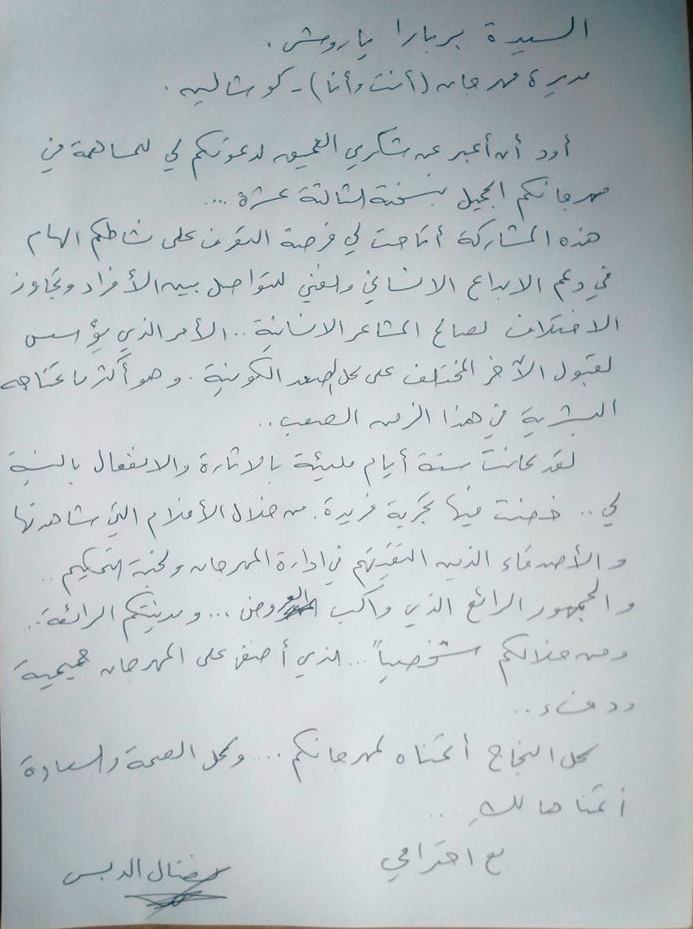 السيدة بربارا ياروش .
مديرة مهرجان (أنت وأنا) - كوشالين .
أود أن أعبر عن شكري العميق لدعوتكم لي للمساهمة في
مهرجانكم الجميل بنسخته الثالثة عشرة ...
هذه المشاركة أتاحت لي فرصة التعرف على نشاطكم الهام
في دعم الابداع الانساني والفني للتواصل بين الأفراد وتجاوز
الاختلاف لصالح المشاعر الانسانية .. الأمر الذي يؤسس
لقبول الآخر المختلف على كل الصعد الكونية . وهو أكثر ما تحتاجه
البشرية في هذا الزمن الصعب ..
لقد كانت ستة أيام مليئة بالاثارة والانفعال بالنسبة
لي .. خضت فيها تجربة فريدة . من خلال الأفلام التي شاهدتها
والأصدقاء الذين التقيتهم في ادارة المهرجان ولجنة التحكيم ..
والجمهور الرائع الذي واكب العروض ... ومدينتكم الرائعة ..
ومن خلالكم شخصياً ... الذي أضفى على المهرجان حميمية
ودفء ..
كل النجاح أتمناه لمهرجانكم .... وكل الصحة والسعادة
أتمناها لكِ ...
مع احترامي
نضال الدبس